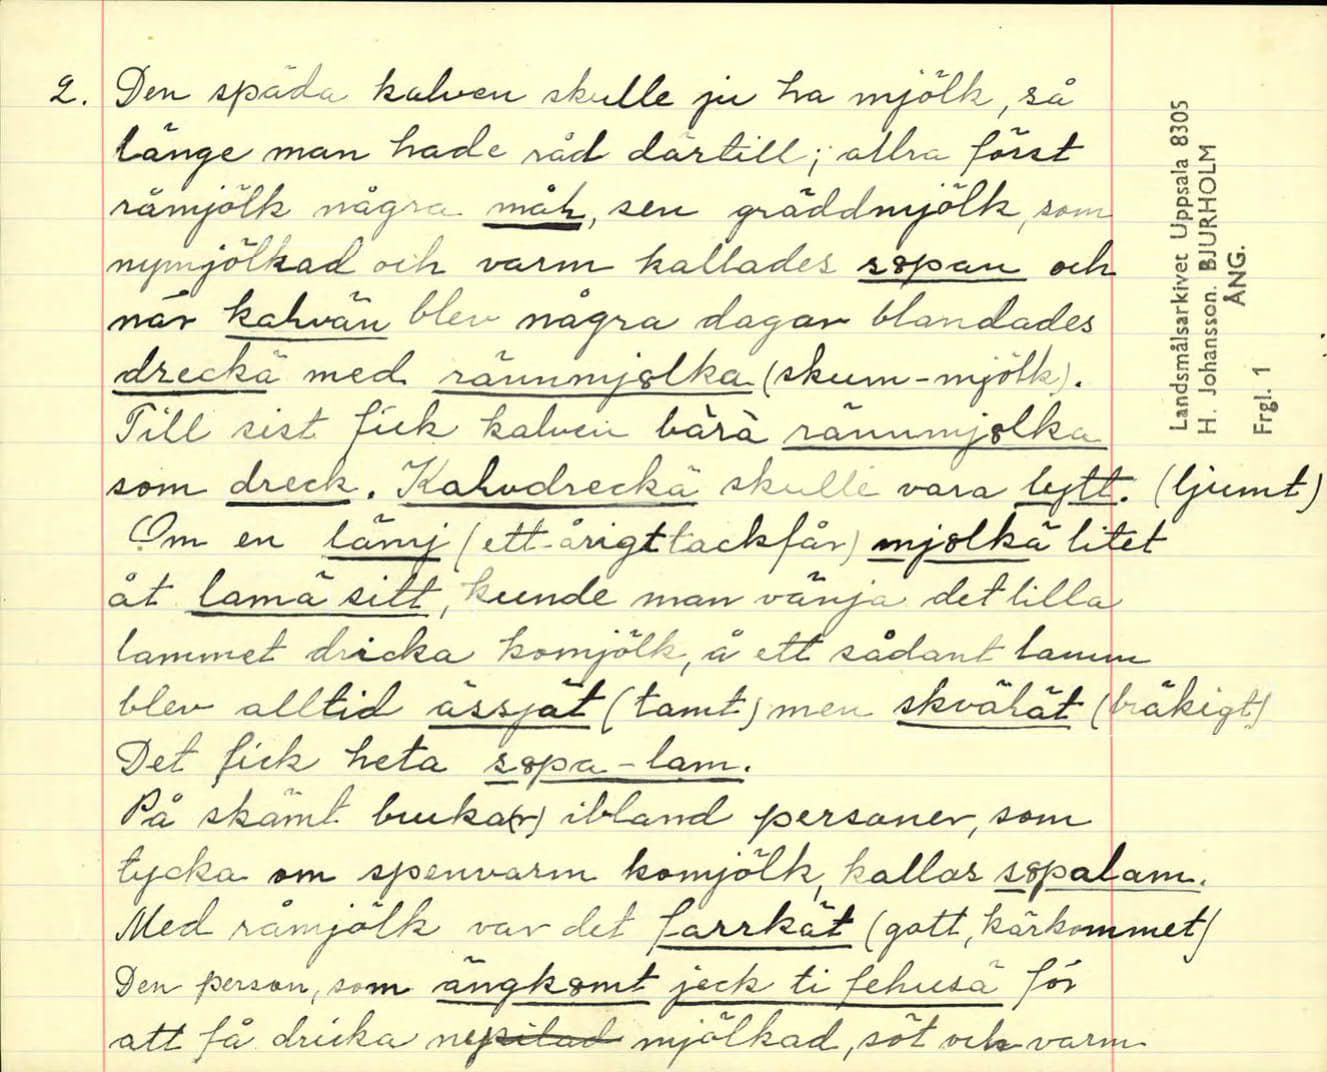 2. Den späda kalven skulle ju ha mjölk, så
länge man hade råd därtill; allra först
råmjölk några måh, sen gräddmjölk, som
nymjölkad och varm kallades søpan och
när kahvän blev några dagar blandades
dreckä med rännmjølka (skum-mjölk).
Till sist fick kalven bàrà rännmjølka
som dreck. Kahvdreckä skulle vara lytt. (ljumt)
Om en lämj (ett-årigt tackfår) mjølkä litet
åt lamä sitt, kunde man vänja det lilla
lammet dricka komjölk, å ett sådant lamm
blev alltid ässjät (tamt) men skvähät (bräkigt)
Det fick heta søpa-lam.
På skämt bruka(r) ibland personer, som
tycka om spenvarm komjölk, kallas søpalam.
Med råmjölk var det farrkät (gott, kärkommet)
Den person, som ängkømt jeck ti fehusä för
att få dricka ny mjölkad, söt och varm
Landsmålsarkivet Uppsala 8305
H. Johansson. BJURHOLM
ÅNG.
Frgl. 1